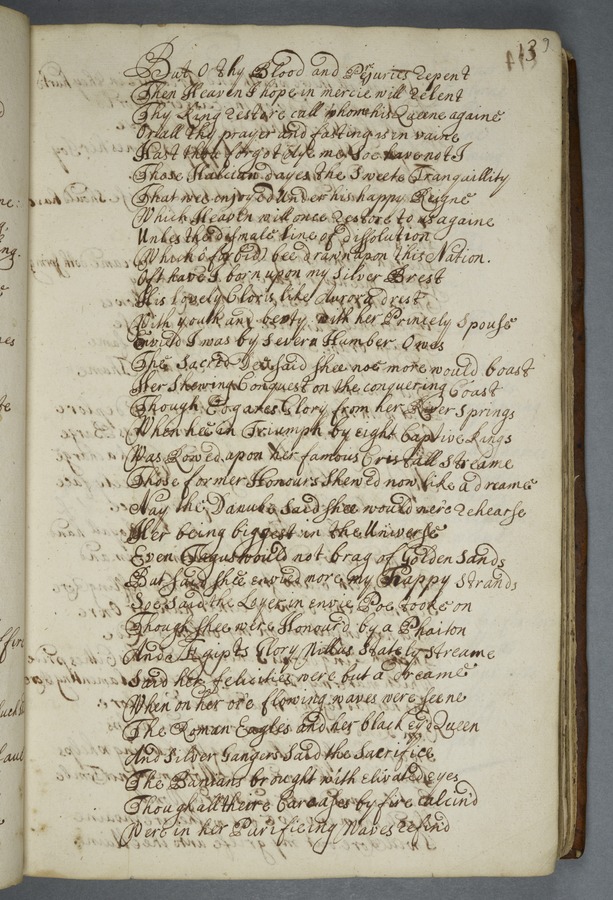 139
But O thy Blood and Perjuries repent
Then Heaven I hope in mercie will relent
Thy King restore call whome his Queene againe
Or all thy prayer and fasting is in vaine
Hast thou forgot Aye me soe have not I
Those Halcion dayes the Sweete Tranquillity
That wee enjoyed Under his happy Reigne
Which Heaven will once restore to us againe
Unles the dismale line of disolution
(Which God forbid) bee drawn upon this Nation.
Oft have I born upon my Silver Brest
His lovely Cloris like Aurora drest
With youth and beuty with her Princely Spouse
Envied I was by Severn Humber Ows
The Sacred Dee said shee noe more would boast
Her Shewing Conquest on the conquering Coast
Though Edgares Glory from her River Springs
When hee in Triumph by eight Captive Kings
Was Rowed upon her famous Cristall Streame
Those former Honours Shewed now like a dreame
Nay the Danube Said shee would nere rehearse
Her being biggest in the Universe
Even Tagus would not brag of Golden Sands
But Said shee envied more my Happy Strands
Soe Said the Loyer in envie Poe tooke on
Though shee were Honour'd by a Phaiton
And Egipts Glory Nilus Stately Streame
Said her felicities were but a dreame
When on her ore flowing waves were seene
The Roman Eagles and her black ey'd Queen
And Silver Ganges Said the Sacrifice
The Banians brought with elivated eyes
Though all theire Carcases by fire calcin'd
Were in her Purificing Waves refind